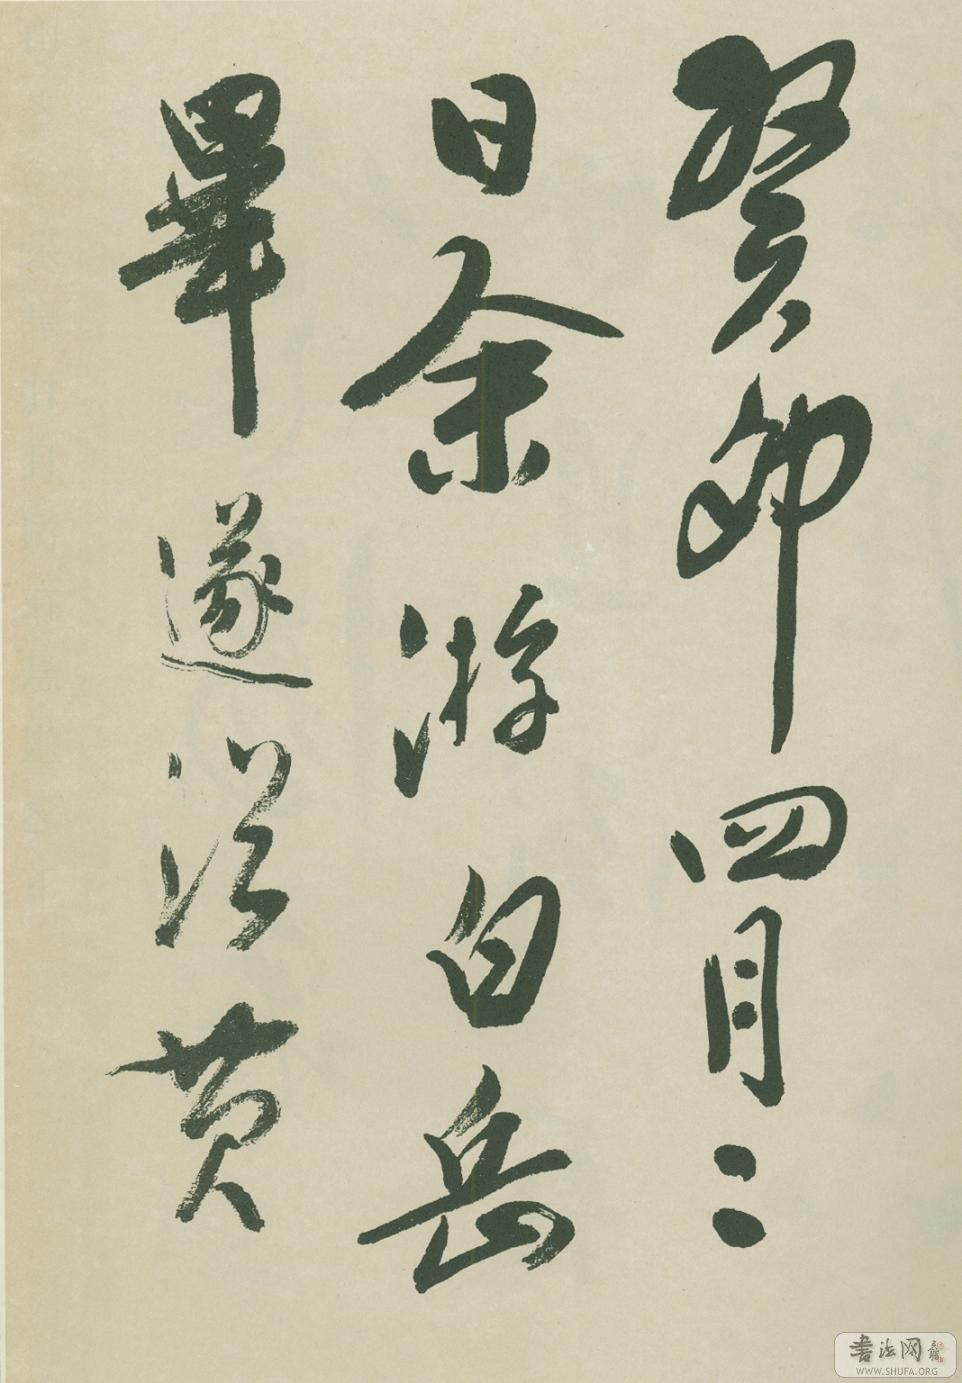 癸卯四月二
日余游白岳
畢遂從黃
書法网
WWW.SHUFA.ORG